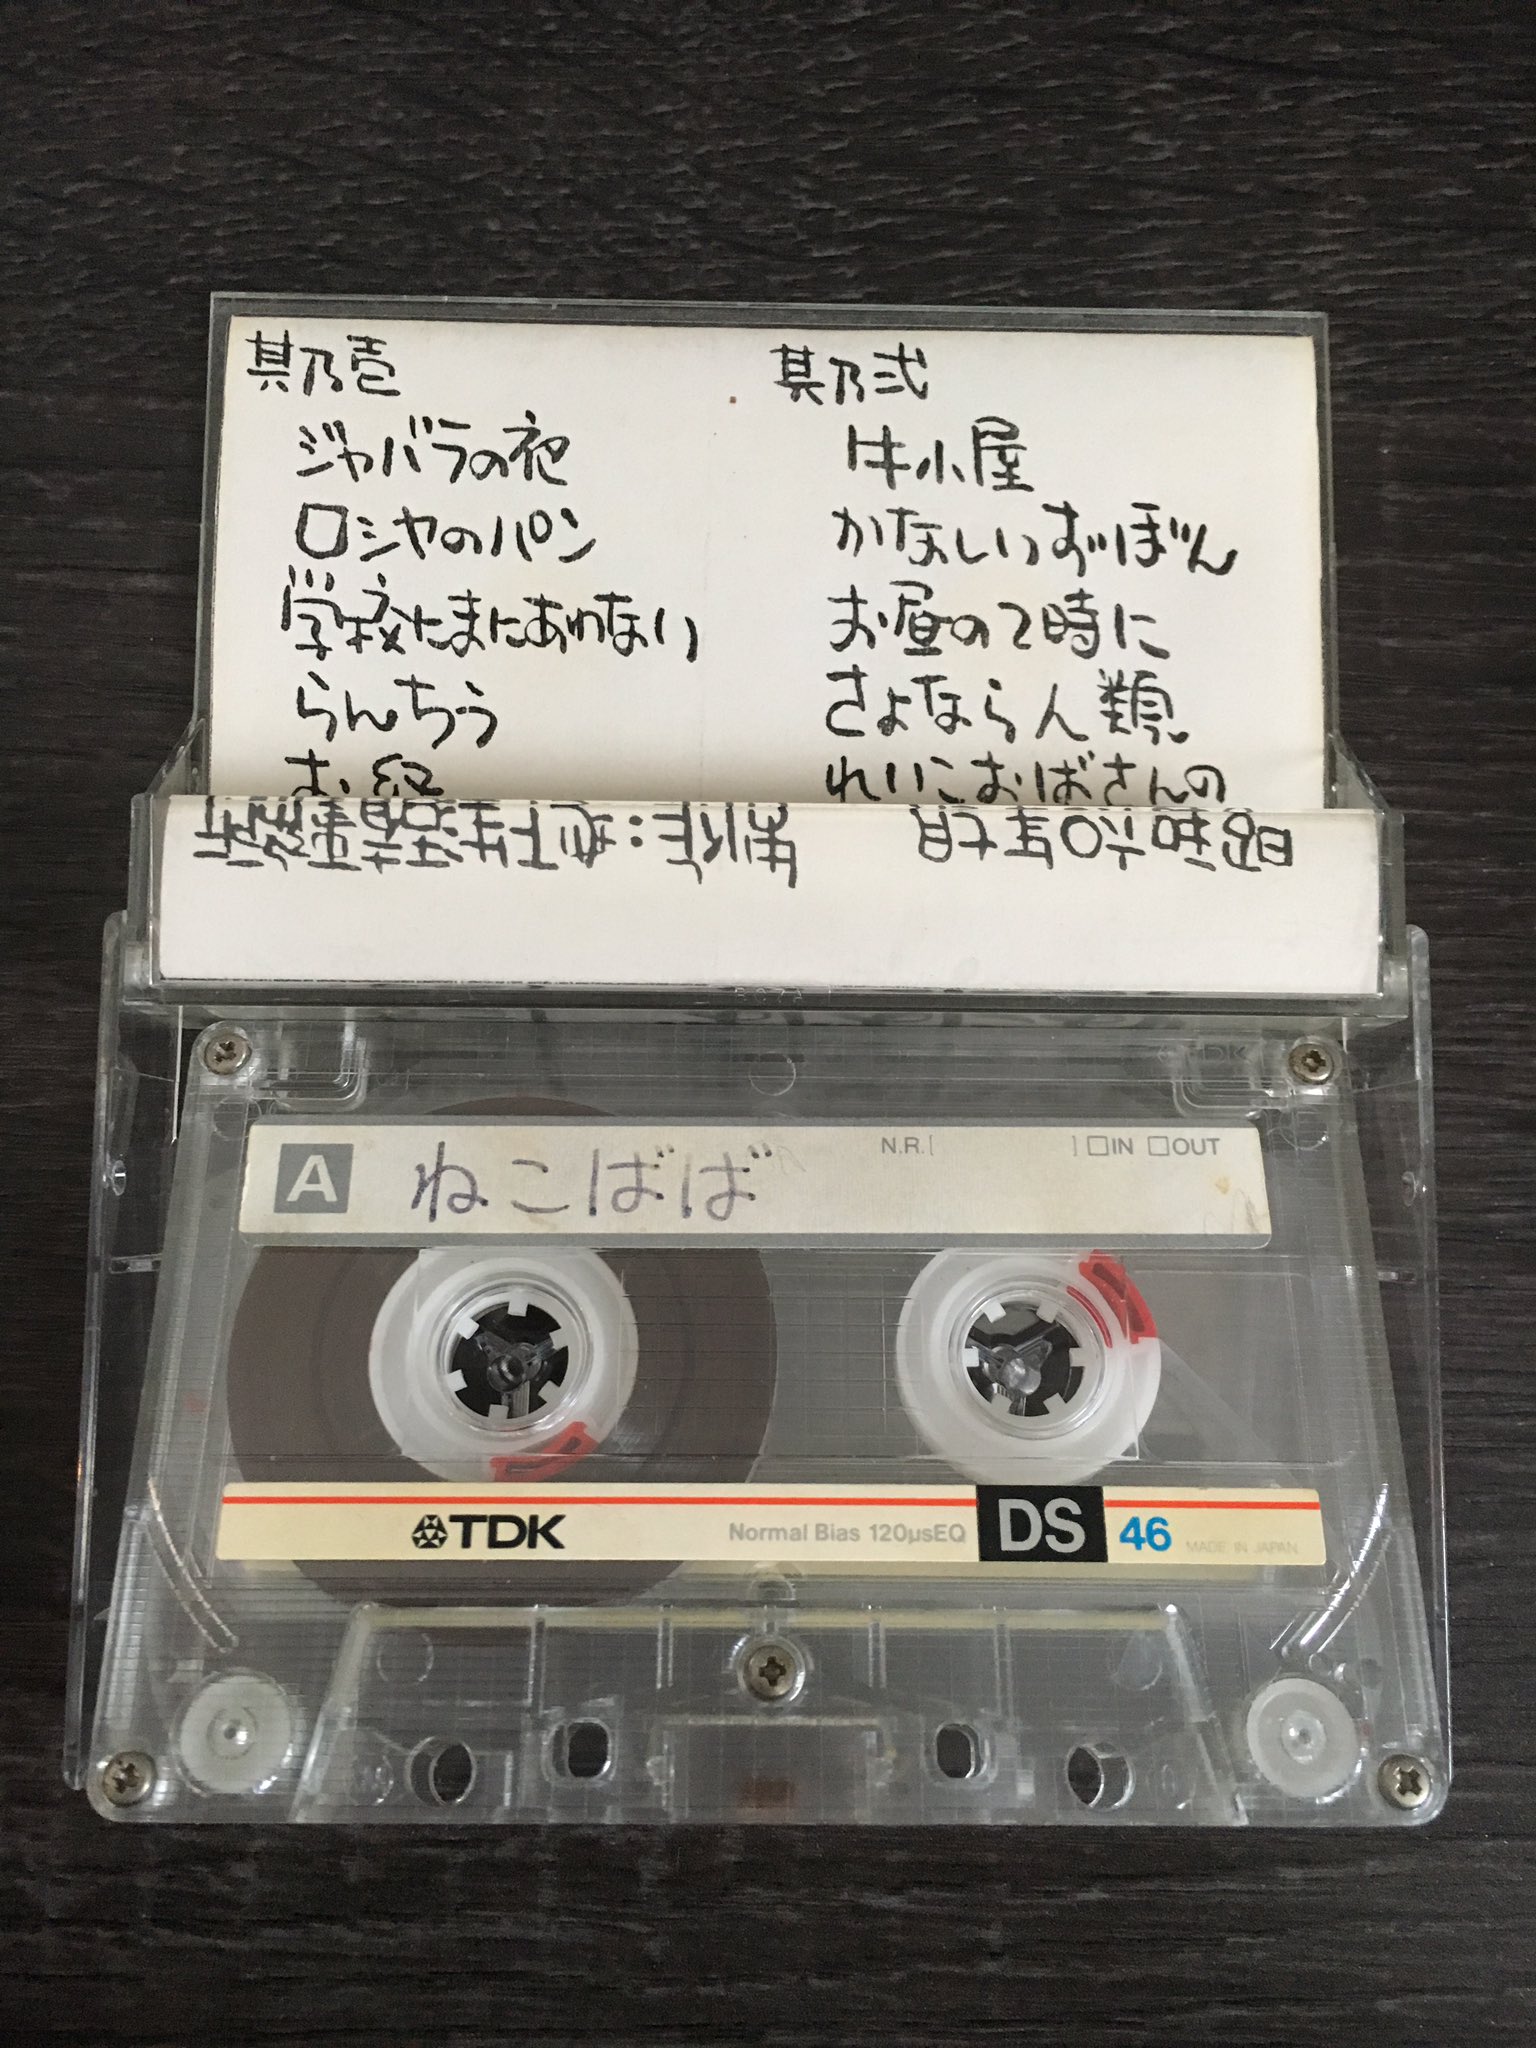 其乃壱
ジャバラの夜
ロシヤのパン
学校にまにあわない
らんちう
お経
其乃弐
牛小屋
かなしいずぼん
お昼の2時に
さよなら人類
れいこおばさんの
A ねこばば N.R.[ ] □IN □OUT
TDK Normal Bias 120μsEQ DS 46 MADE IN JAPAN